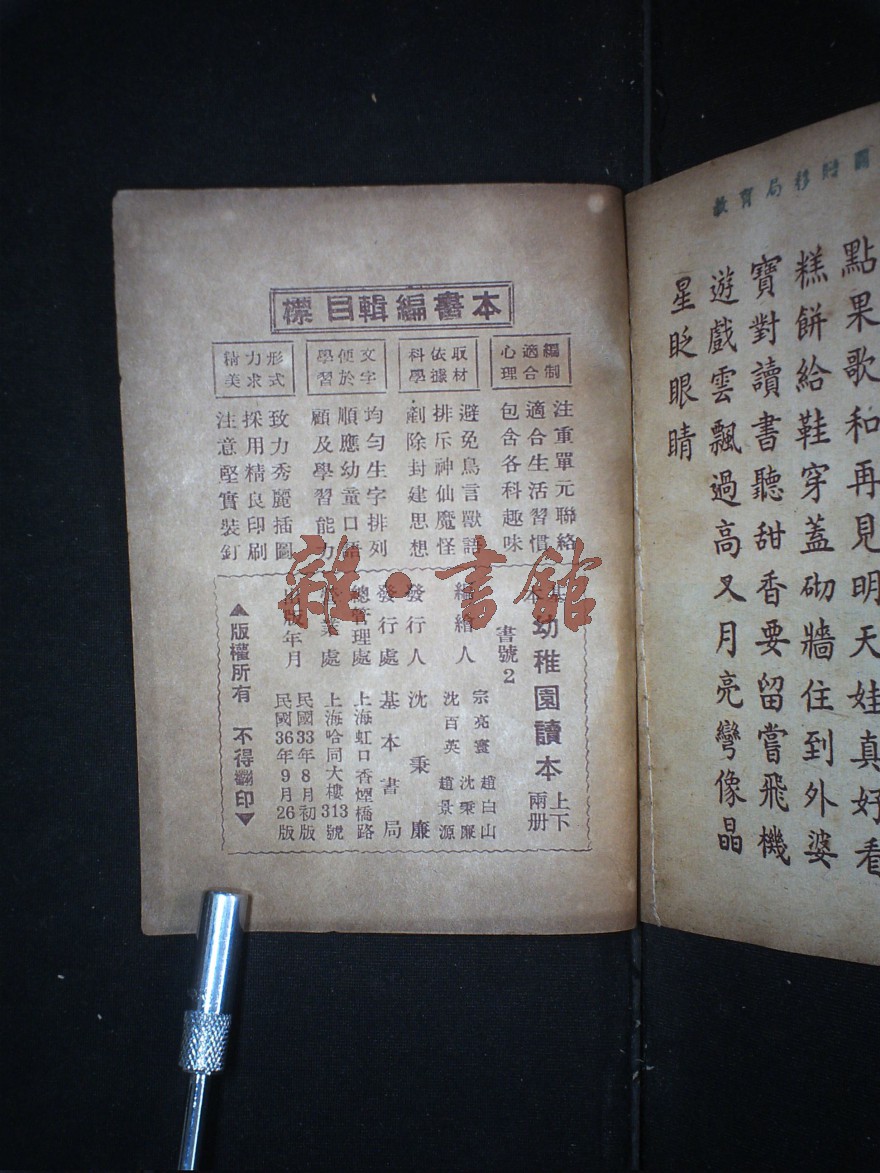 教育局移
點果歌和再見明天娃真好看
糕餅給鞋穿蓋砌牆住到外婆
寶對讀書聽甜香要留嘗飛機
遊戲雲飄過高又月亮彎像晶
星眨眼睛
本書編輯目標
編制適合心理
注重單元聯絡
適合生活習慣
包含各科趣味
取材依據科學
避免鳥言獸語
排斥神仙魔怪
剷除封建思想
文字便於學習
均勻生字排列
順應幼童口語
顧及學習能力
形式力求精美
致力秀麗插圖
採用精良印刷
注意堅實裝釘
基本 幼稚園讀本 上下兩册
書號2
編繪人 宗亮寰 趙白山 沈百英 沈秉廉 趙景源
發行人 沈秉廉
發行處 基本書局
總管理處 上海虹口香煙橋路
業處 上海哈同大樓313號
出版年月 民國33年8月初版
民國36年9月26版
▲版權所有 不得翻印▼
雜·書館